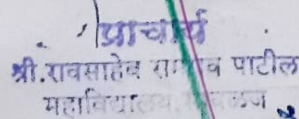 प्राचार्य
श्री.रावसाहेब रामराव पाटील
महाविद्यालय,